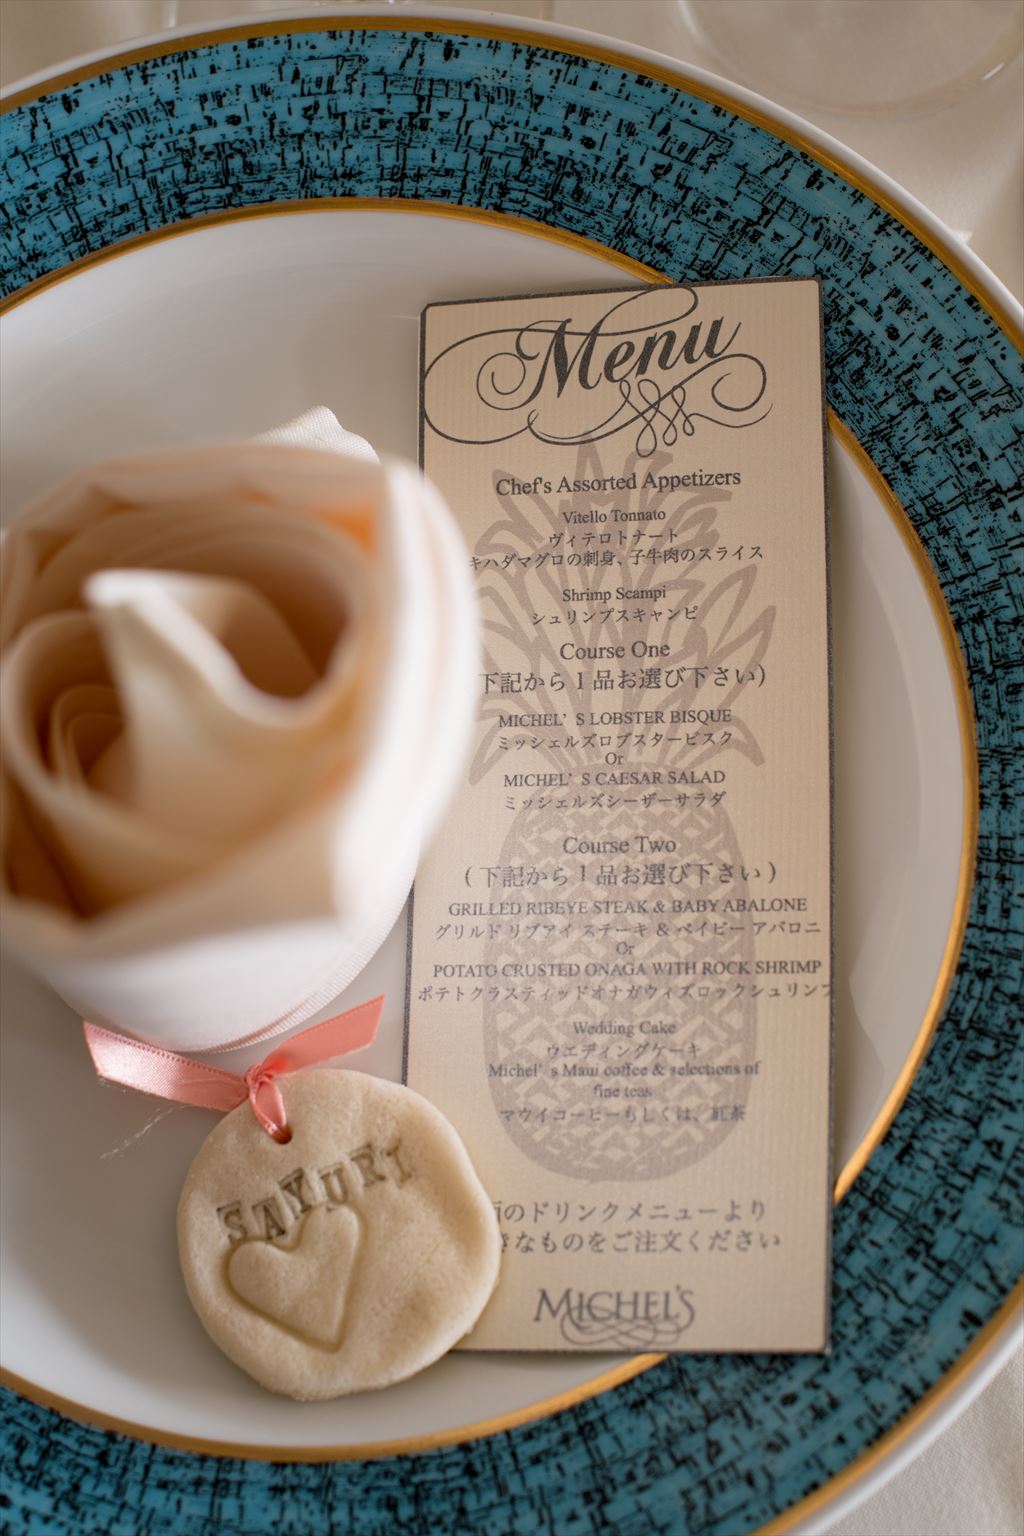 Menu
Chef's Assorted Appetizers
Vitello Tonnato
ヴィテロトナート
キハダマグロの刺身、子牛肉のスライス
Shrimp Scampi
シュリンプスキャンピ
Course One
下記から1品お選び下さい)
MICHEL'S LOBSTER BISQUE
ミッシェルズロブスタービスク
Or
MICHEL'S CAESAR SALAD
ミッシェルズシーザーサラダ
Course Two
(下記から1品お選び下さい)
GRILLED RIBEYE STEAK & BABY ABALONE
グリルド リブアイ ステーキ & ベイビー アバロニ
Or
POTATO CRUSTED ONAGA WITH ROCK SHRIMP
ポテトクラスティッドオナガウィズロックシュリンプ
Wedding Cake
ウエディングケーキ
Michel's Maui coffee & selections of
fine teas
マウイコーヒーもしくは、紅茶
のドリンクメニューより
きなものをご注文ください
MICHEL'S
SAYURI